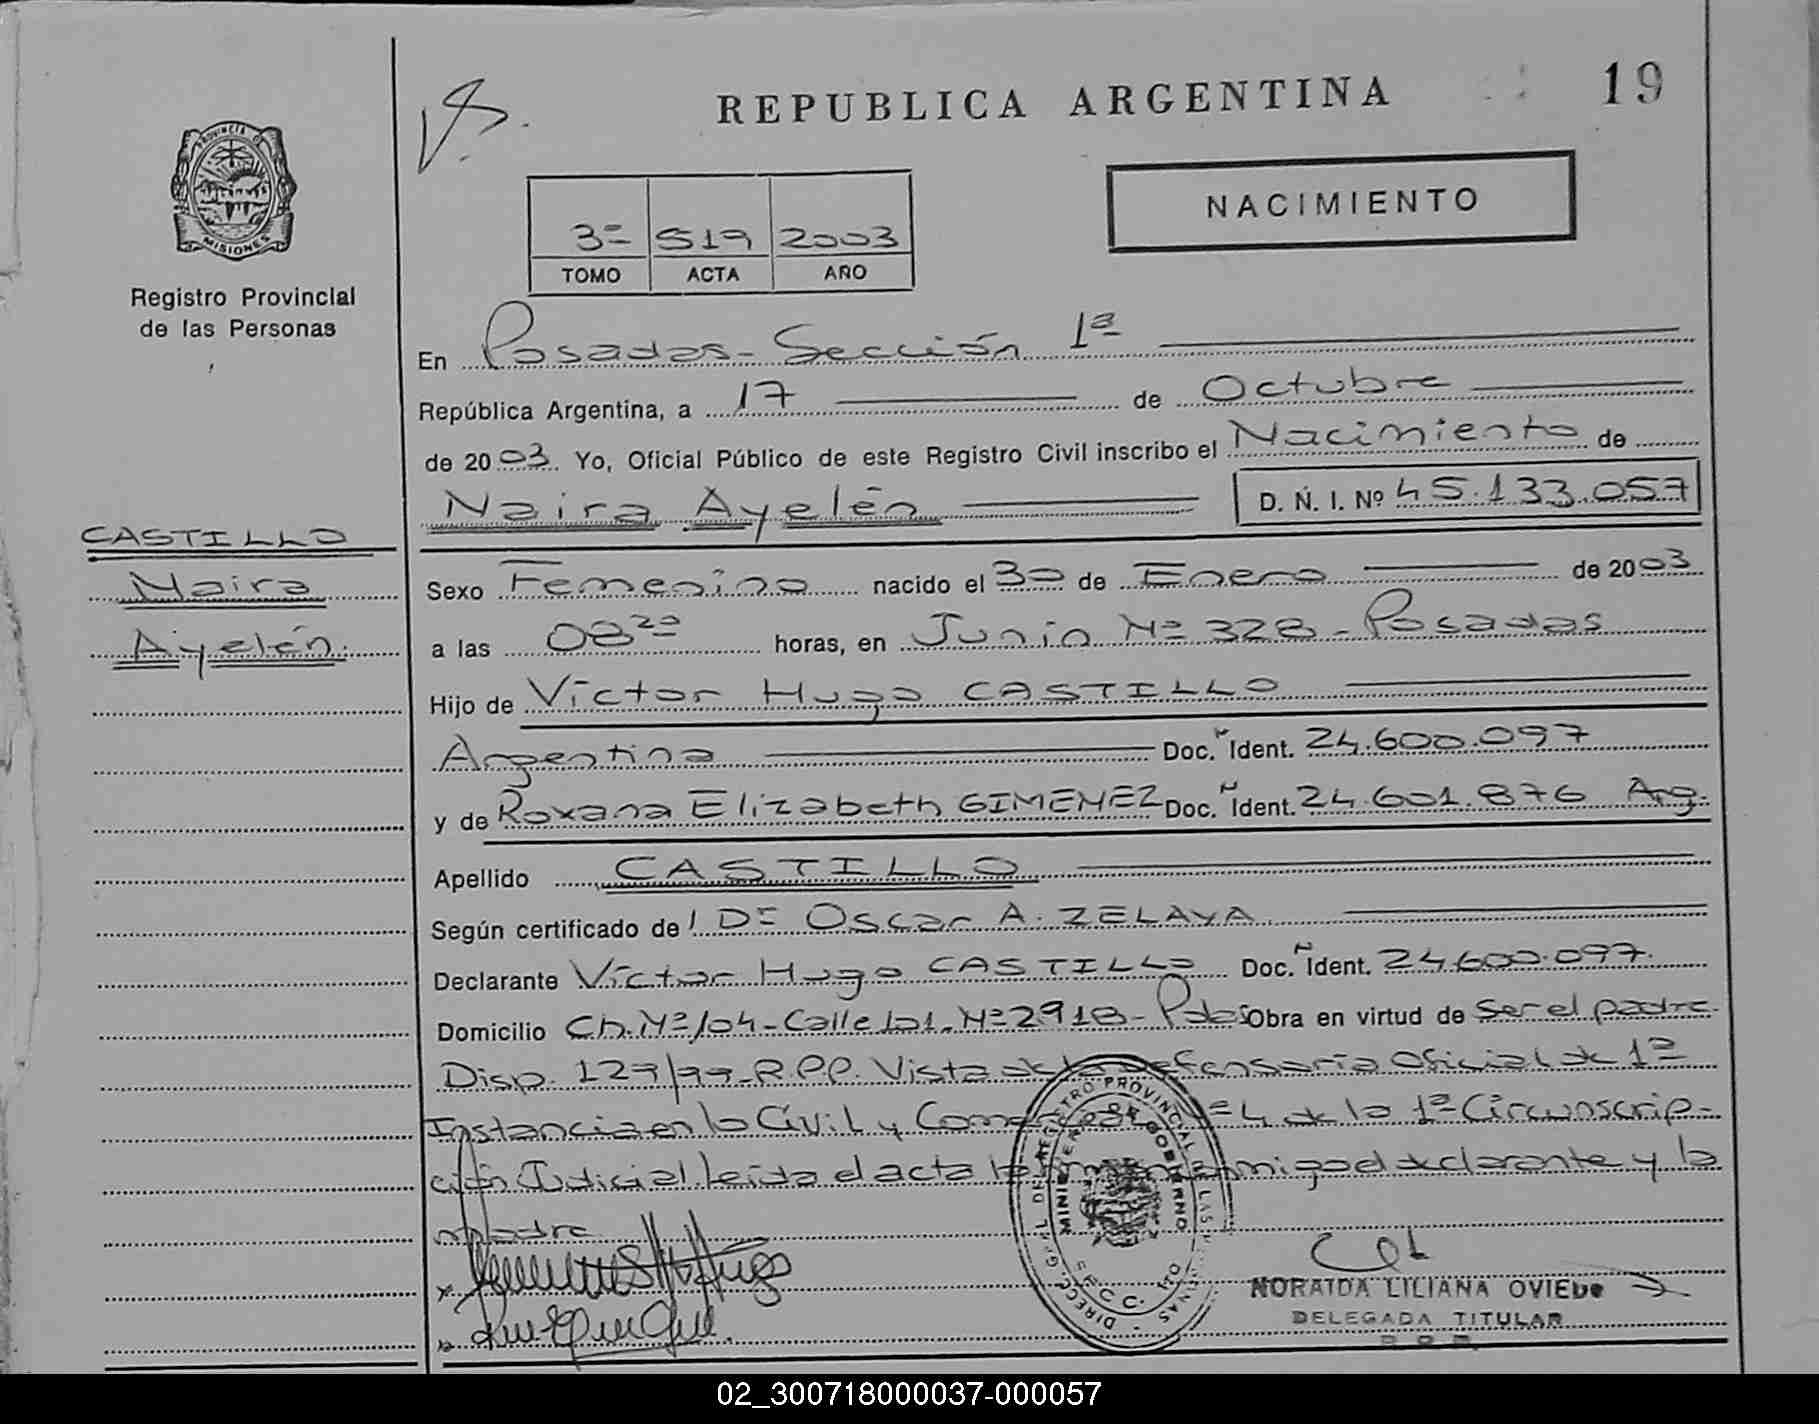 REPUBLICA ARGENTINA
19
PROVINCIA DE
MISIONES
Registro Provincial
de las Personas
NACIMIENTO
3º 519 2003
TOMO ACTA AÑO
En Posadas - Sección 1ª
República Argentina, a 17 de Octubre
de 2003. Yo, Oficial Público de este Registro Civil inscribo el Nacimiento de
Naira Ayelén D. N. I. Nº 45.133.057
CASTILLO
Naira
Ayelén
Sexo Femenino nacido el 30 de Enero de 2003
a las 08²⁰ horas, en Junín Nº 328 - Posadas
Hijo de Víctor Hugo CASTILLO
Argentina Doc. Ident. 24.600.097
y de Roxana Elizabeth GIMENEZ Doc. Ident. 24.601.876 Arg.
Apellido CASTILLO
Según certificado de Dr Oscar A. ZELAYA
Declarante Víctor Hugo CASTILLO Doc. Ident. 24.600.097.
Domicilio Ch. Nº 104 - Calle 101. Nº 2918 - Pdas Obra en virtud de Ser el padre.
Disp. 127/99 - R.P.P. Vista de la Defensoría Oficial de 1ª
Instancia en lo Civil y Comercial Nº 4 de la 1ª Circunscrip-
ción Judicial. Leída el acta la firman conmigo el declarante y la
madre
MINISTERIO DE GOBIERNO
NORAIDA LILIANA OVIEDO
DELEGADA TITULAR
02_300718000037-000057